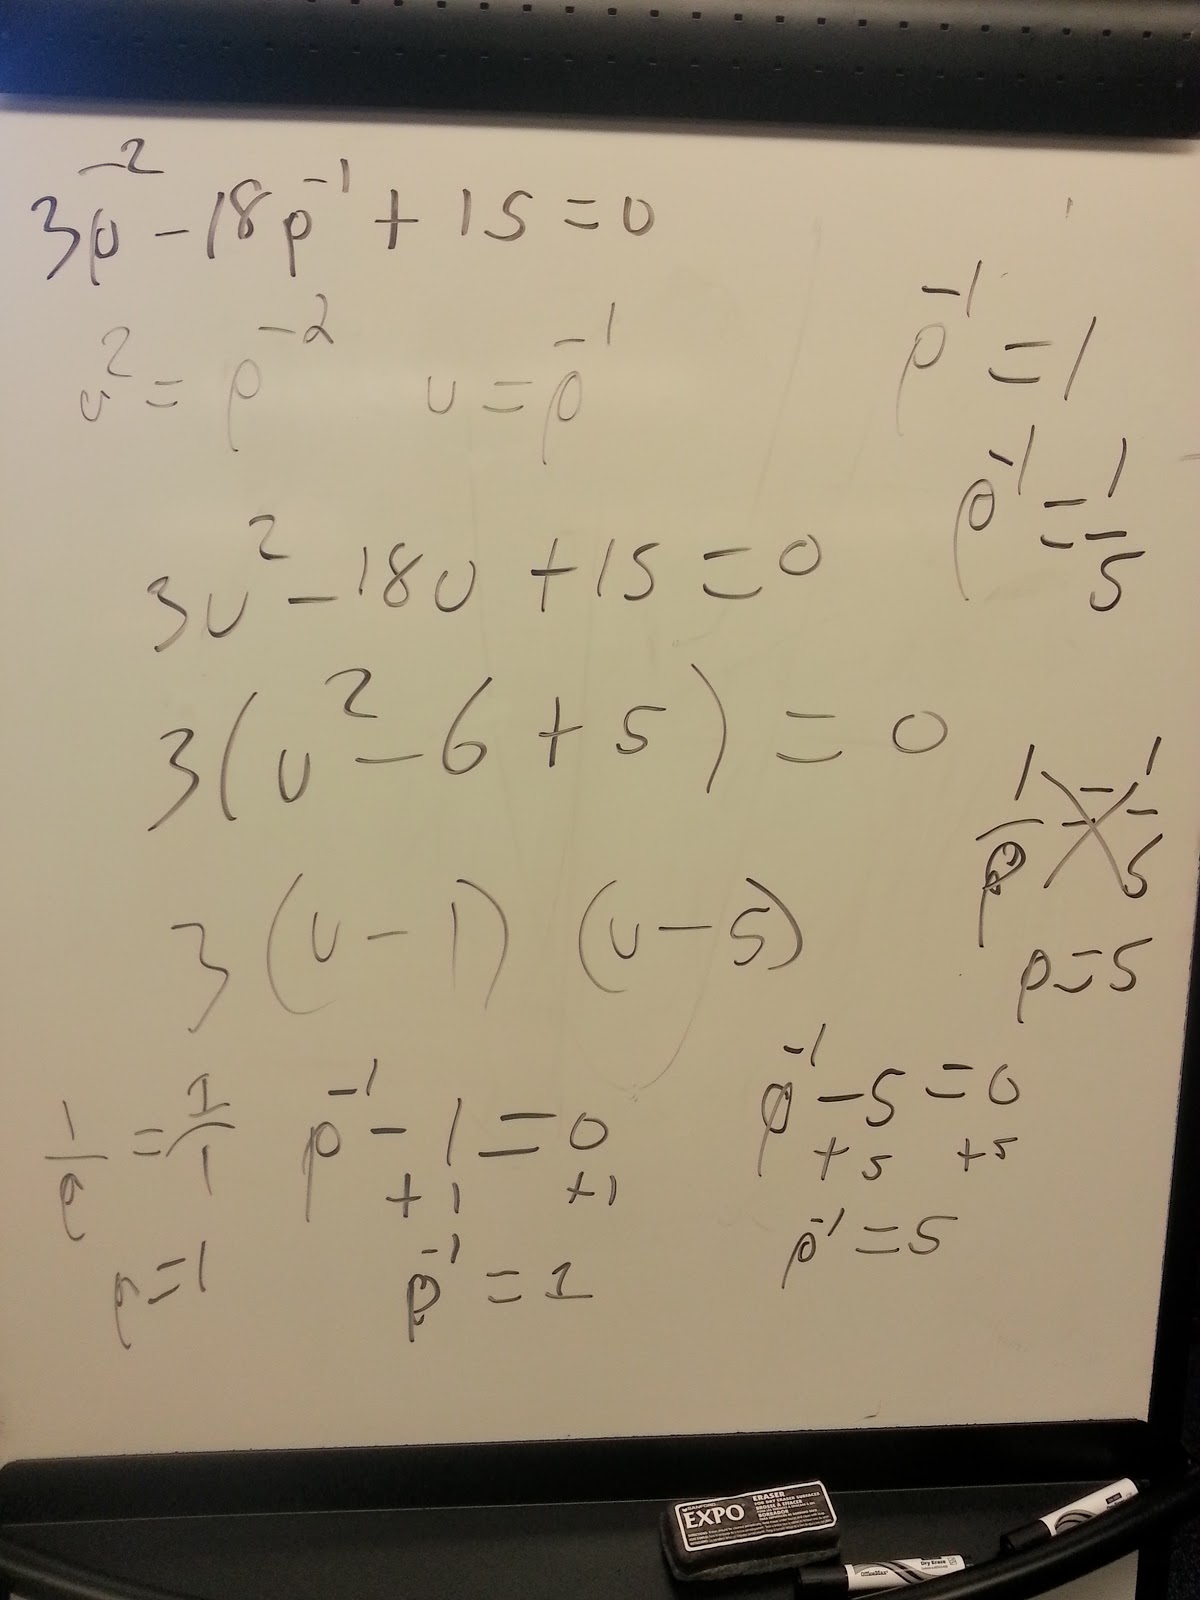 3p⁻² - 18p⁻¹ + 15 = 0
u² = p⁻² u = p⁻¹
3u² - 18u + 15 = 0
3(u² - 6 + 5) = 0
3(u - 1) (u - 5)
1/p = 1/1
p = 1
p⁻¹ - 1 = 0
+1 +1
p⁻¹ = 1
p⁻¹ - 5 = 0
+5 +5
p⁻¹ = 5
p⁻¹ = 1
p⁻¹ = 1/5
1/p = 1/5
p = 5
SANFORD
EXPO
ERASER
FOR DRY ERASE SURFACES
OfficeMax
Dry Erase